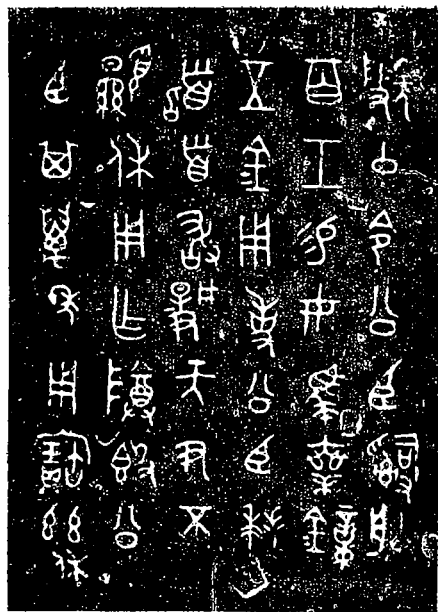 虢中令公臣𤔲朕
百工易女馬乘鐘
五金用事公臣拜
𩒨首敢揚天尹不
顯休用乍尊簋公
臣其萬年用寶茲休